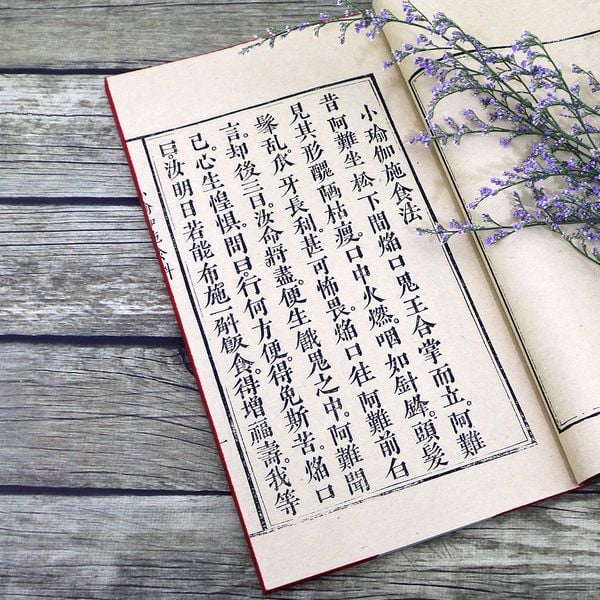 小瑜伽施食法
昔阿難坐松下間焰口鬼王合掌而立。阿難
見其形醜陋枯瘦。口中火燃。咽如針鋒。頭髮
髼亂爪牙長利。甚可怖畏。焰口往阿難前白
言。却後三日。汝命將盡。便生餓鬼之中。阿難聞
已。心生惶惧。問曰。行何方便。得免斯苦。焰口
曰。汝明日若能布施一斛飯食。得增福壽。我等